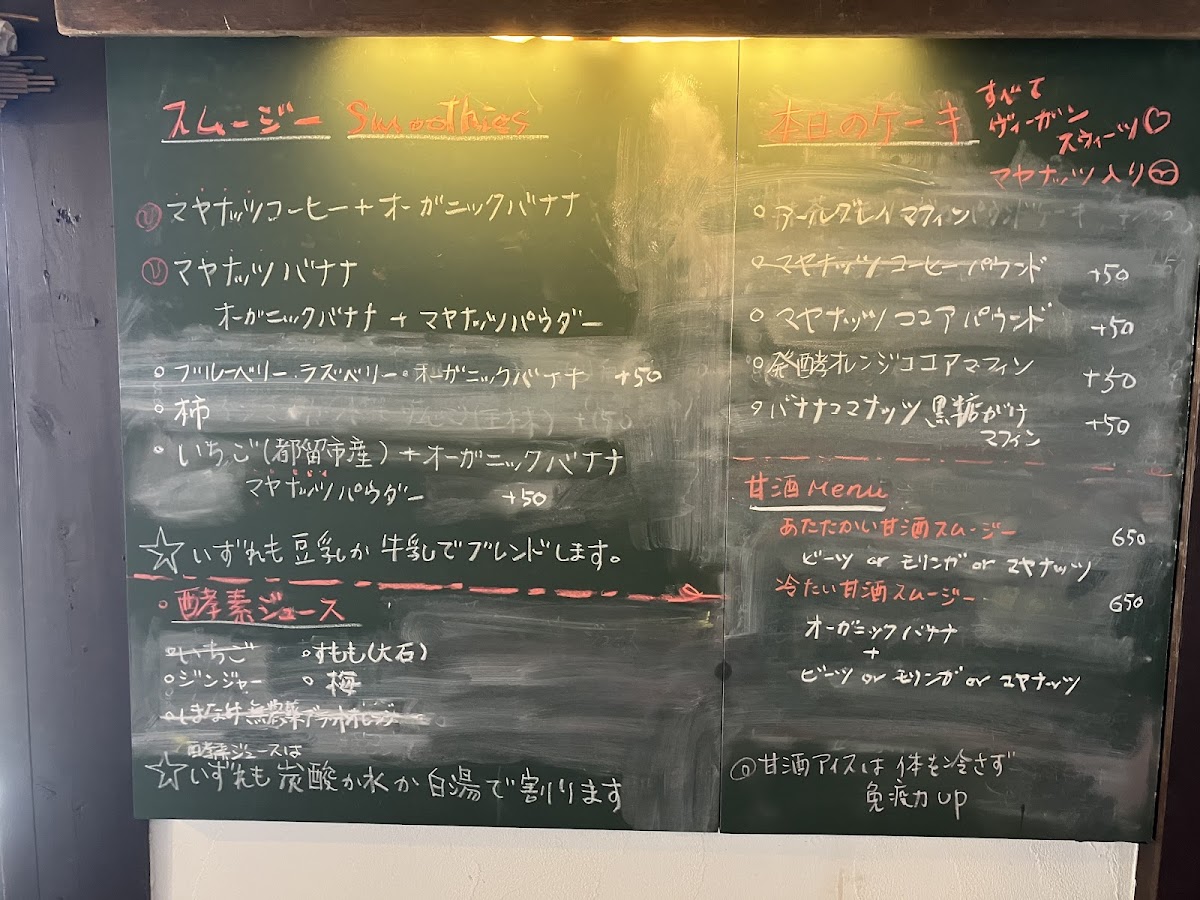 スムージー Smoothies
マヤナッツコーヒー+オーガニックバナナ
マヤナッツバナナ
オーガニックバナナ+マヤナッツパウダー
ブルーベリー・ラズベリー・オーガニックバナナ +50
柿
いちご(都留市産)+オーガニックバナナ
マヤナッツパウダー +50
☆いずれも豆乳か牛乳でブレンドします。
酵素ジュース
いちご すもも(大石)
ジンジャー 梅
無農薬ブラッドオレンジ
酵素ジュースは
☆いずれも炭酸か水か白湯で割ります
本日のケーキ
すべて
ヴィーガン
スウィーツ♡
マヤナッツ入り
アールグレイマフィン
マヤナッツコーヒーパウンド +50
マヤナッツココアパウンド +50
発酵オレンジココアマフィン +50
バナナココナッツ黒糖がけ
マフィン +50
甘酒Menu
あたたかい甘酒スムージー 650
ビーツ or モリンガ or マヤナッツ
冷たい甘酒スムージー 650
オーガニックバナナ
+
ビーツ or モリンガ or マヤナッツ
甘酒アイスは体を冷さず
免疫力up